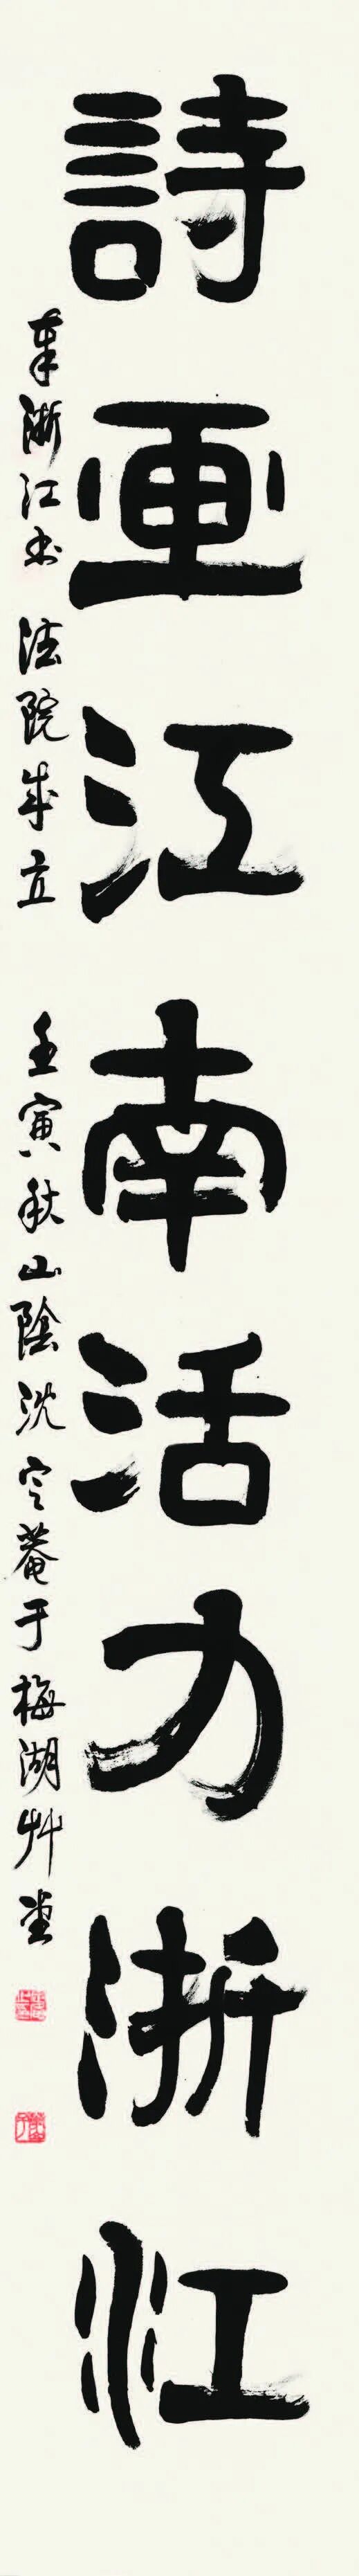 詩畫江南活力浙江
奉浙江书法院成立 壬寅秋山陰沈定菴于梅湖艸堂